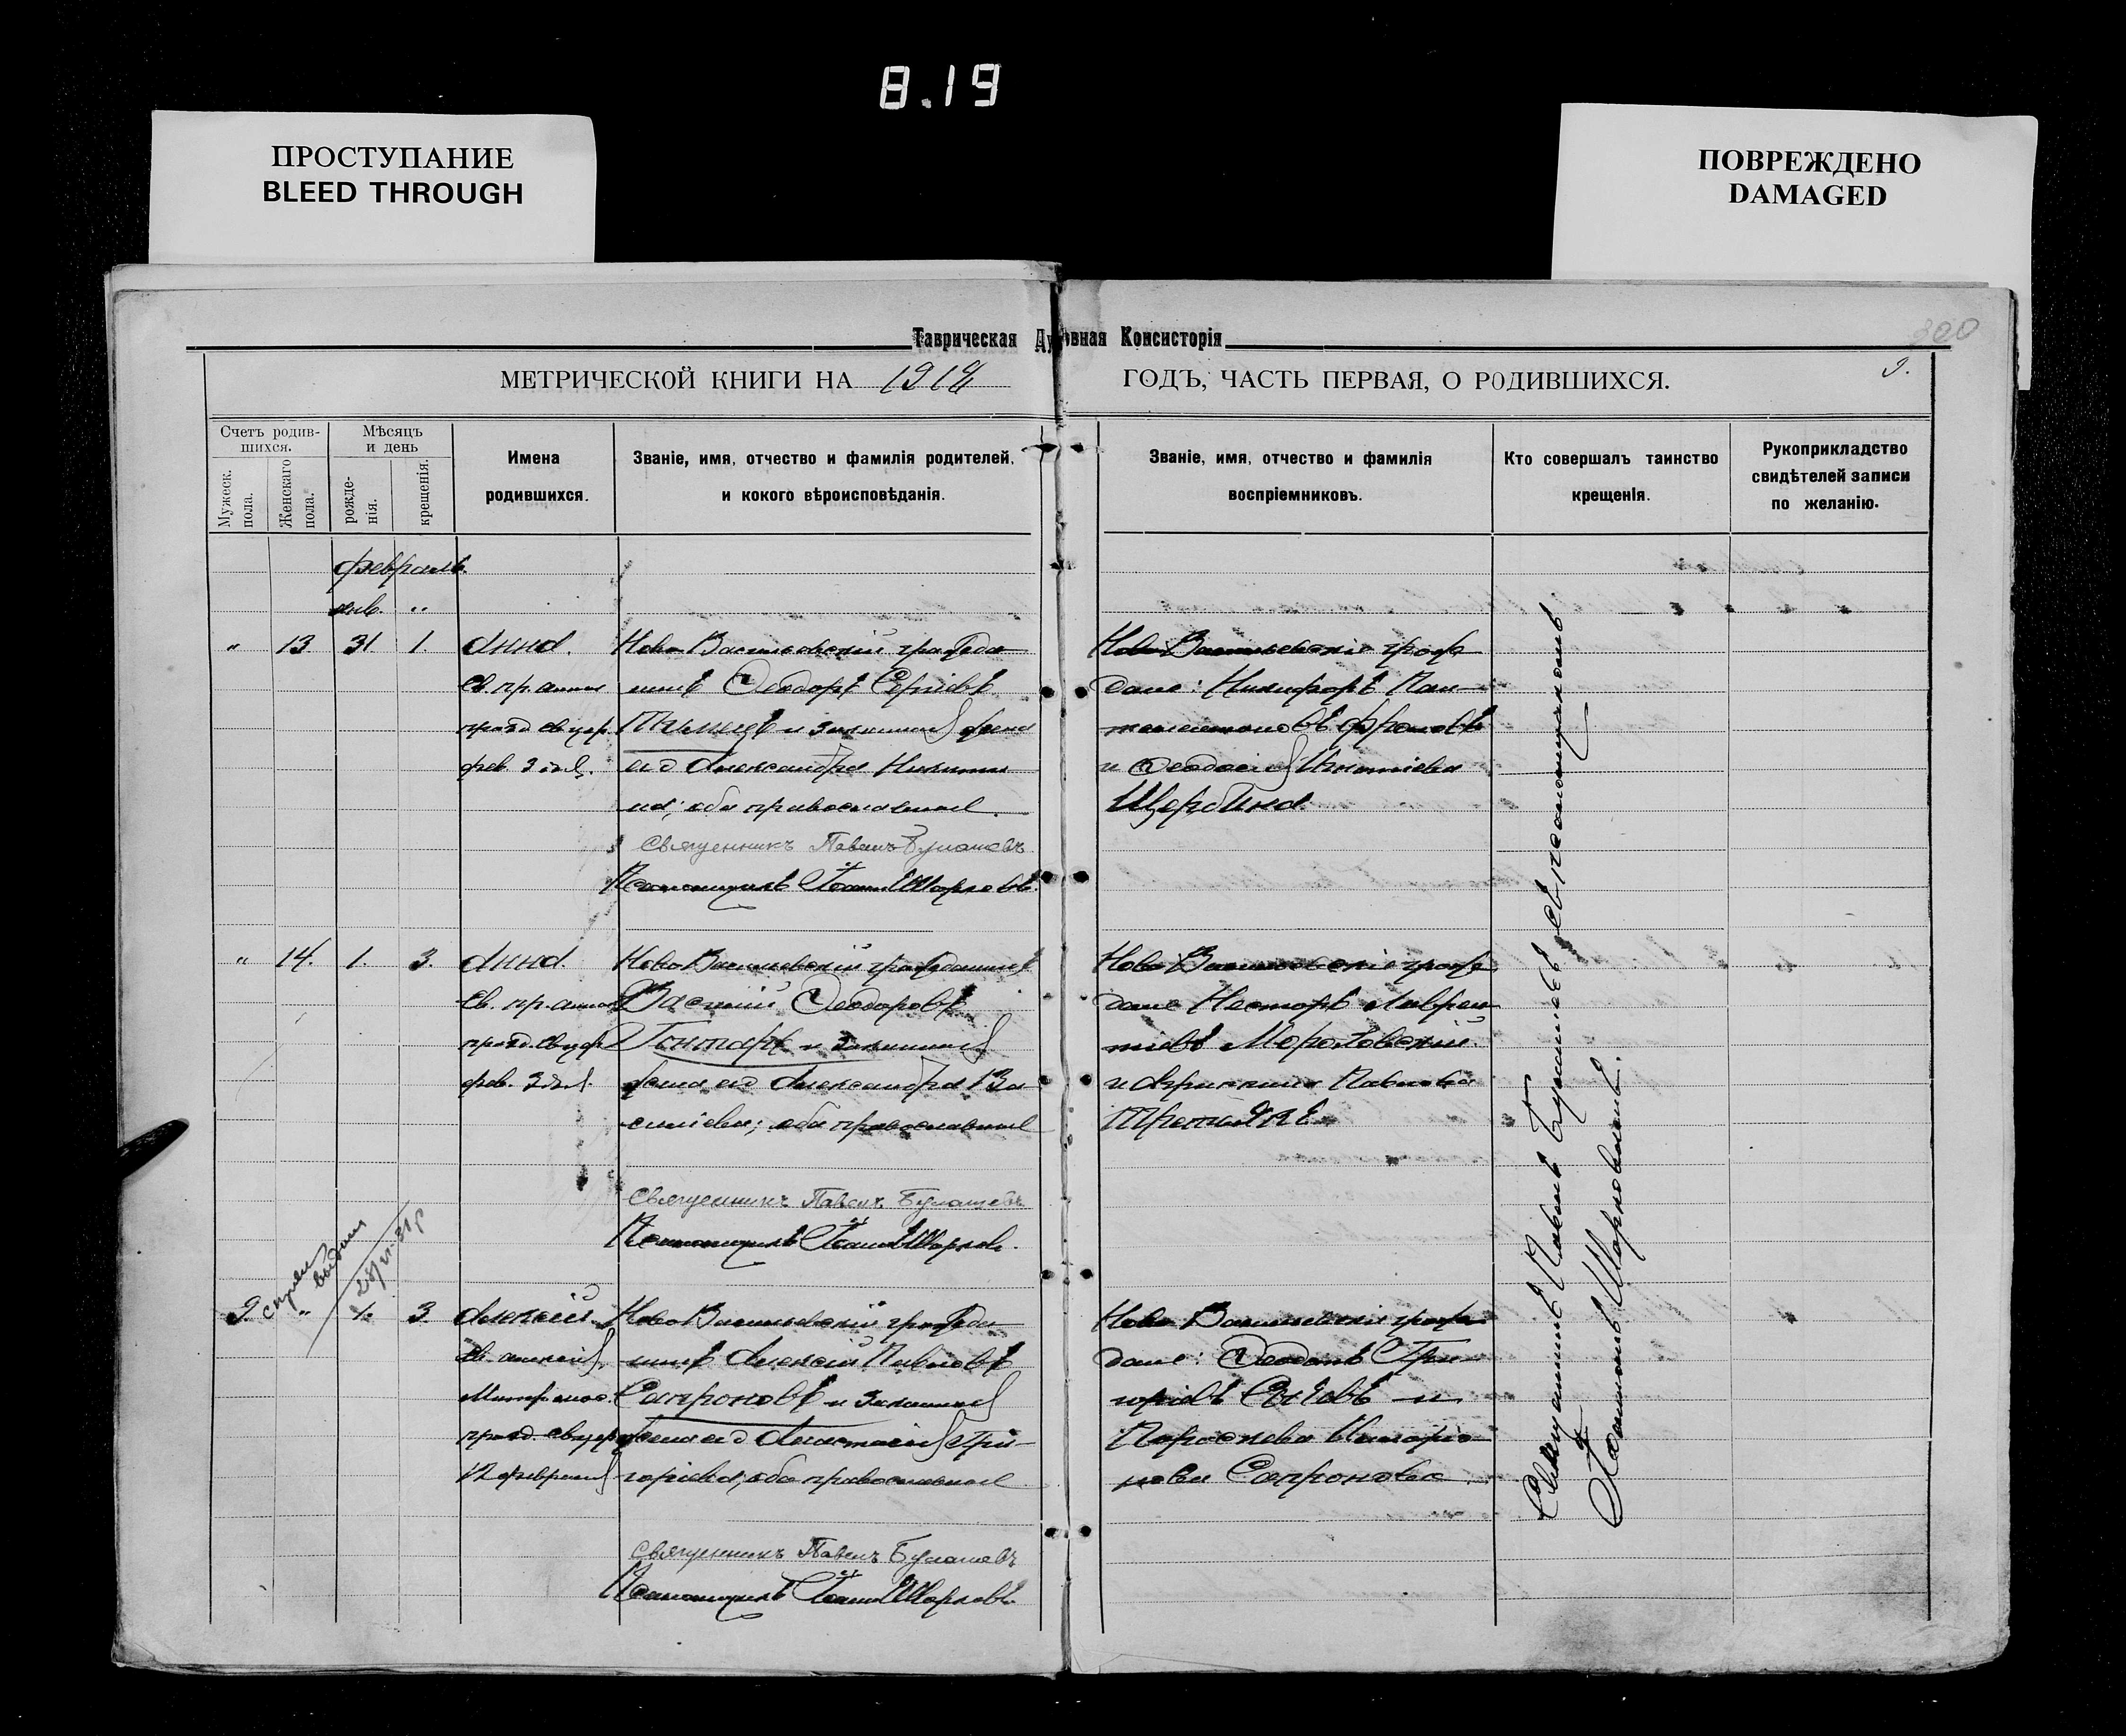 8.19
ПРОСТУПАНИЕ
BLEED THROUGH
ПОВРЕЖДЕНО
DAMAGED
Таврическая Духовная Консисторія
МЕТРИЧЕСКОЙ КНИГИ НА 191 ГОДЪ, ЧАСТЬ ПЕРВАЯ, О РОДИВШИХСЯ.
9.
Счетъ родив-
шихся.
Мужеск.
пола.
Женскаго
пола.
Мѣсяцъ
и день
рожде-
нія.
крещенія.
Имена
родившихся.
Званіе, имя, отчество и фамилія родителей,
и кокого вѣроисповѣданія.
Званіе, имя, отчество и фамилія
воспріемниковъ.
Кто совершалъ таинство
крещенія.
Рукоприкладство
свидѣтелей записи
по желанію.
Февраль.
янв. "
" 13. 31 1. Анна.
Св. пр. Анна
празд. св. цер.
фев. 3 дня.
Ново Васильевскій гражда-
нинъ Ѳеодоръ Сергіевъ
и законная жена
его Александра Никити-
на; оба православные.
Священникъ Павелъ Булашевъ
Псаломщикъ Іоаннъ Шарковъ.
Ново Васильевскіе граж
дане: Никифоръ Пан-
телеимоновъ Фроловъ
и Ѳеодосія Игнатіева
Щербина.
" 14. 1. 3. Анна.
Св. пр. Анна
празд. св. цер
фев. 3 дня.
Ново Васильевскій гражданинъ
Василій Ѳеодоровъ
Гонтарь и законная
жена его Александра Ва
силіева; оба православные
Священникъ Павелъ Булашевъ
Псаломщикъ Іоаннъ Шарковъ.
Ново Васильевскіе граж
дане Несторъ Лаврен
тіевъ
и Агриппина Павлова
9. " 1. 3. Алексій.
Св. Алексій
Митрополит.
празд. св. цер
12 февраля
Ново Васильевскій гражда-
нинъ Алексій Павловъ
Сапроновъ и законная
жена его Анастасія Гри-
горіева; оба православные
Священникъ Павелъ Булашевъ
Псаломщикъ Іоаннъ Шарковъ.
Ново Васильевскіе граж
дане: Ѳеодотъ Гри-
горіевъ и
Параскева Иларіо-
нова Сапронова.
Священникъ Павелъ Булашевъ съ псаломщикомъ
Іоанномъ Шарковымъ.